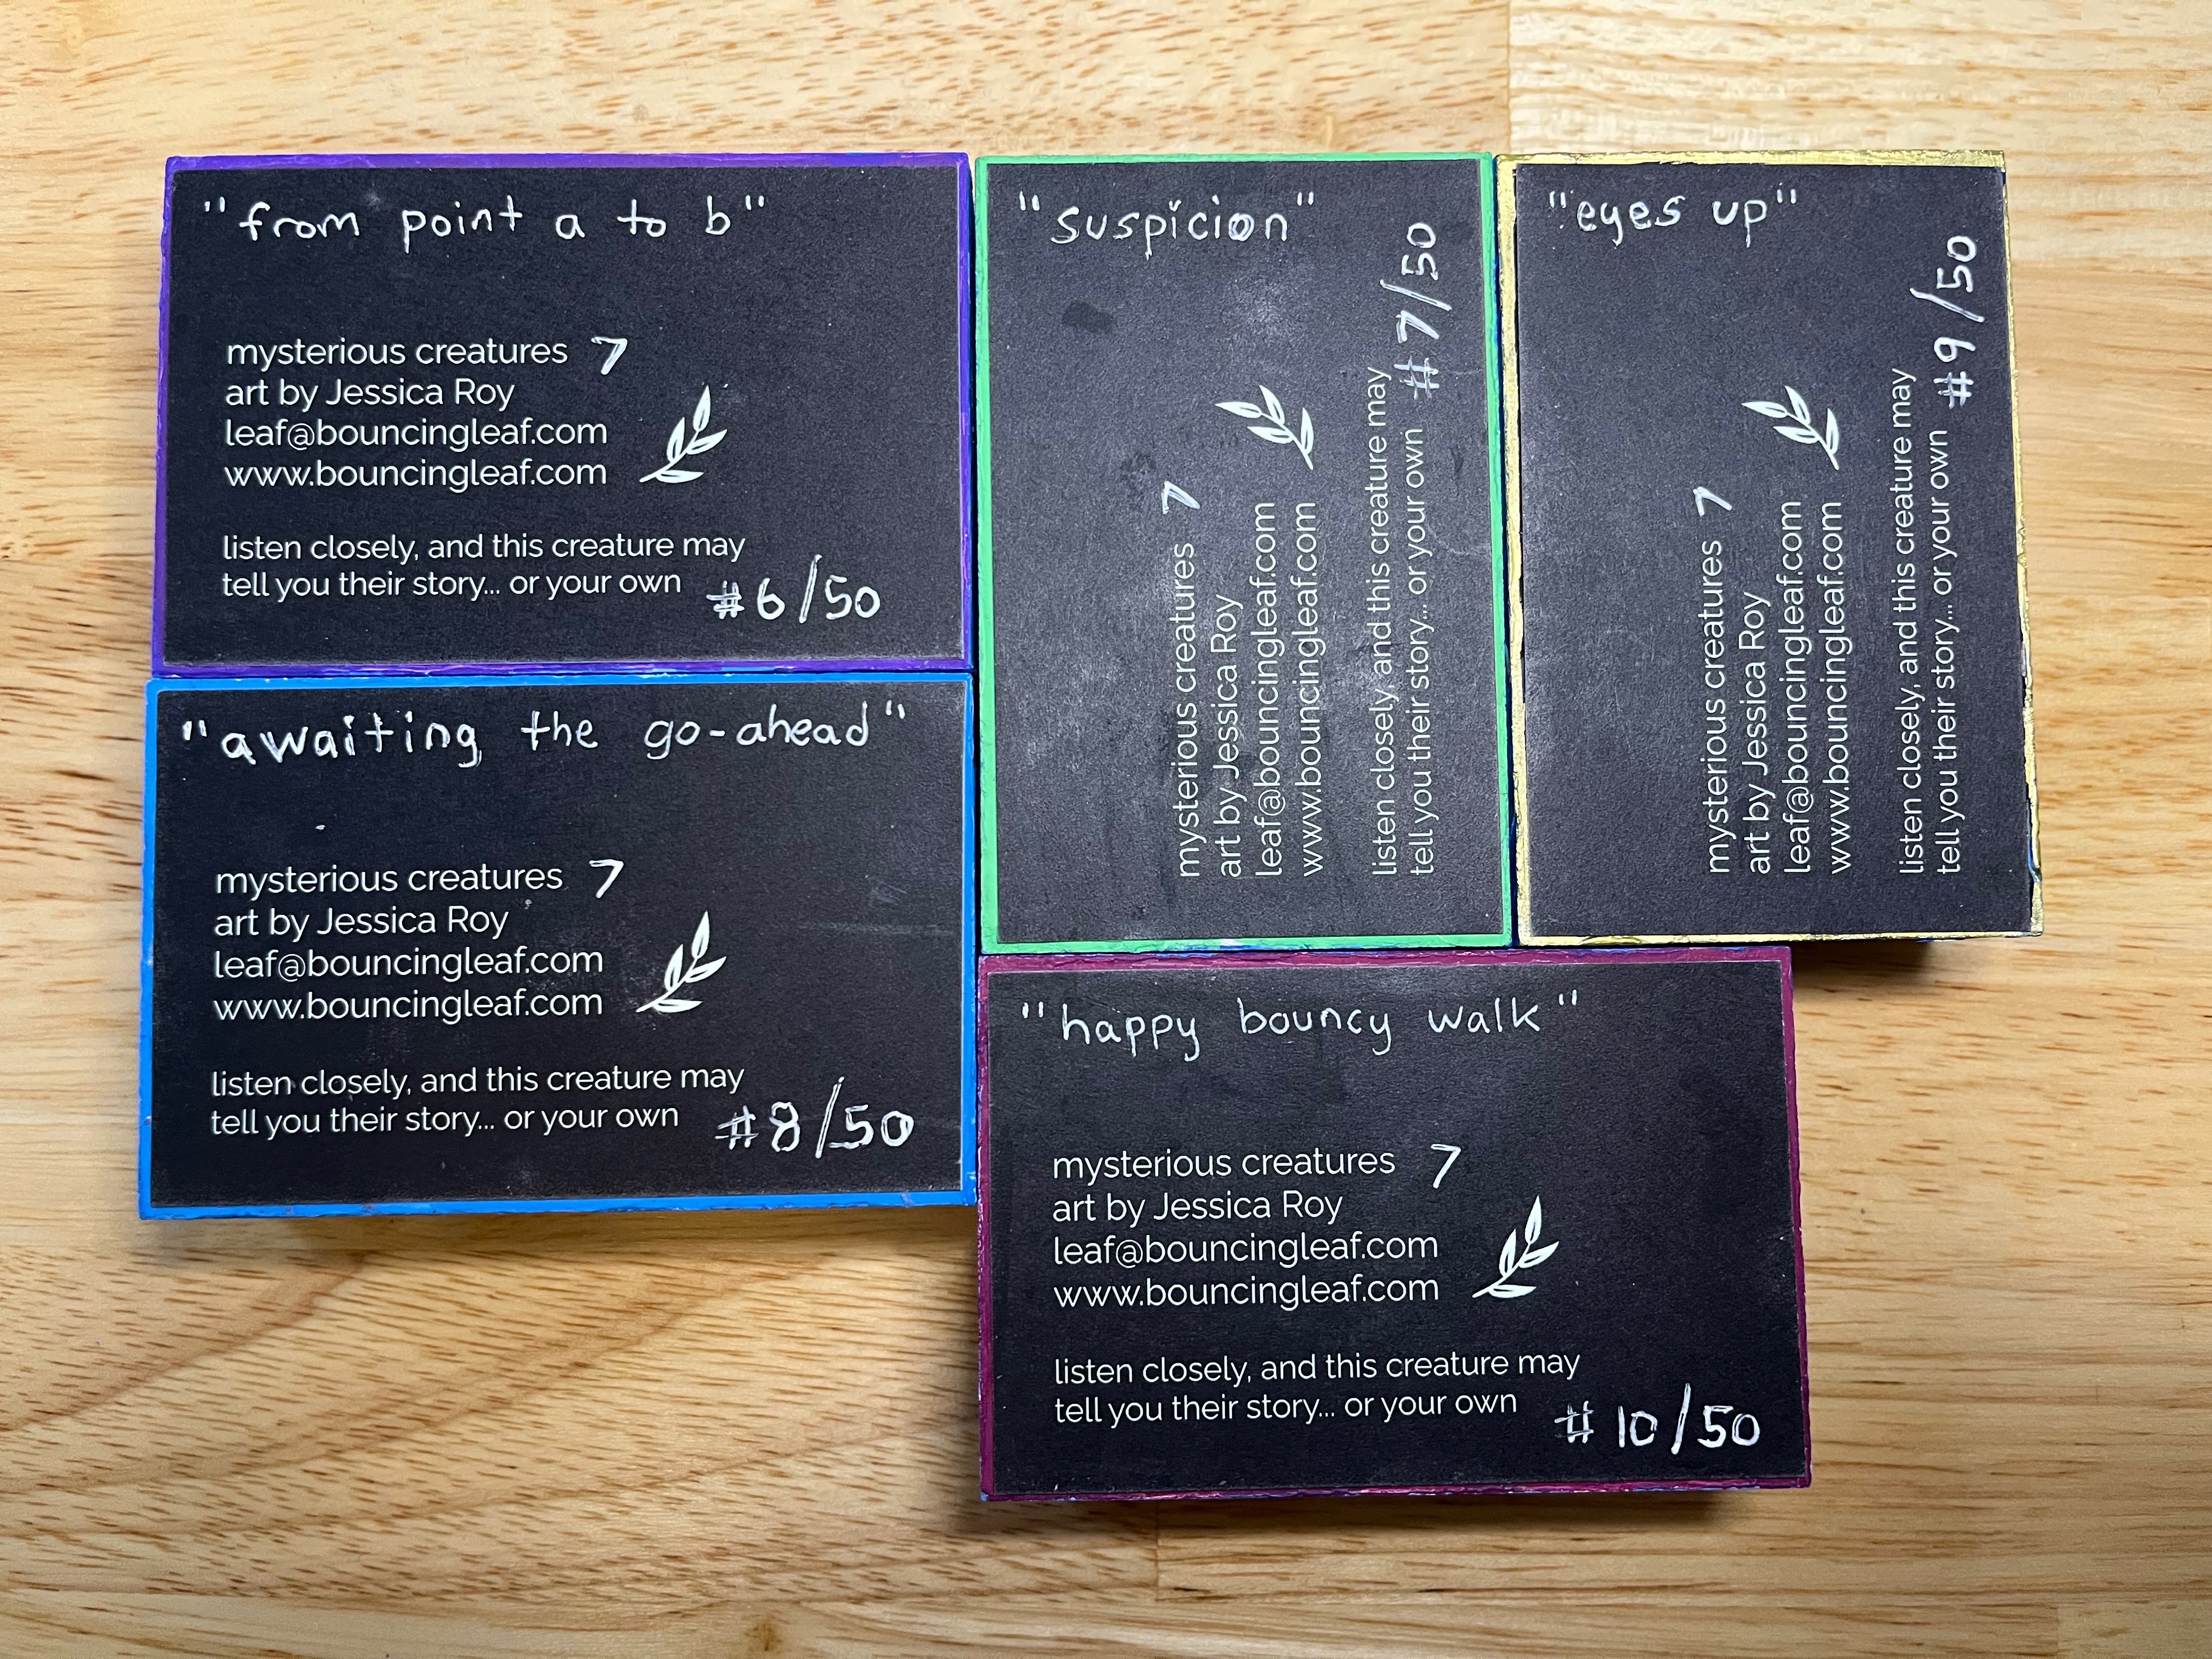 "from point a to b"
mysterious creatures 7
art by Jessica Roy
leaf@bouncingleaf.com
www.bouncingleaf.com
listen closely, and this creature may
tell you their story... or your own
#6/50
"suspicion"
mysterious creatures 7
art by Jessica Roy
leaf@bouncingleaf.com
www.bouncingleaf.com
listen closely, and this creature may
tell you their story... or your own
#7/50
"eyes up"
mysterious creatures 7
art by Jessica Roy
leaf@bouncingleaf.com
www.bouncingleaf.com
listen closely, and this creature may
tell you their story... or your own
#9/50
"awaiting the go-ahead"
mysterious creatures 7
art by Jessica Roy
leaf@bouncingleaf.com
www.bouncingleaf.com
listen closely, and this creature may
tell you their story... or your own
#8/50
"happy bouncy walk"
mysterious creatures 7
art by Jessica Roy
leaf@bouncingleaf.com
www.bouncingleaf.com
listen closely, and this creature may
tell you their story... or your own
#10/50